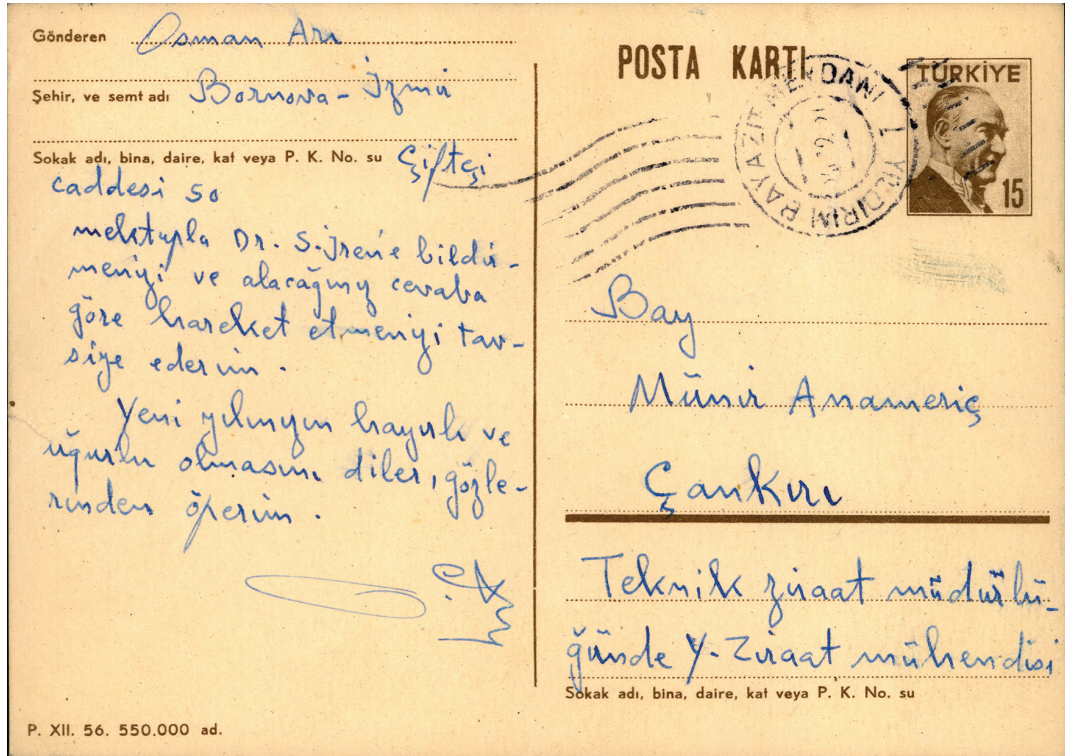 Gönderen Osman Arı
Şehir, ve semt adı Bornova - İzmir
Sokak adı, bina, daire, kat veya P. K. No. su Çiftçi
caddesi 50
mektupla Dr. S. İren'e bildir-
menizi ve alacağınız cevaba
göre hareket etmenizi tav-
siye ederim.
Yeni yılınızın hayırlı ve
uğurlu olmasını diler, gözle-
rinden öperim.
P. XII. 56. 550.000 ad.
POSTA KARTI
YILDIRIM BAYAZIT MEYDANI
TÜRKİYE
15
Bay
Münir Anameriç
Çankırı
Teknik ziraat müdürlü-
ğünde Y. Ziraat mühendisi
Sokak adı, bina, daire, kat veya P. K. No. su